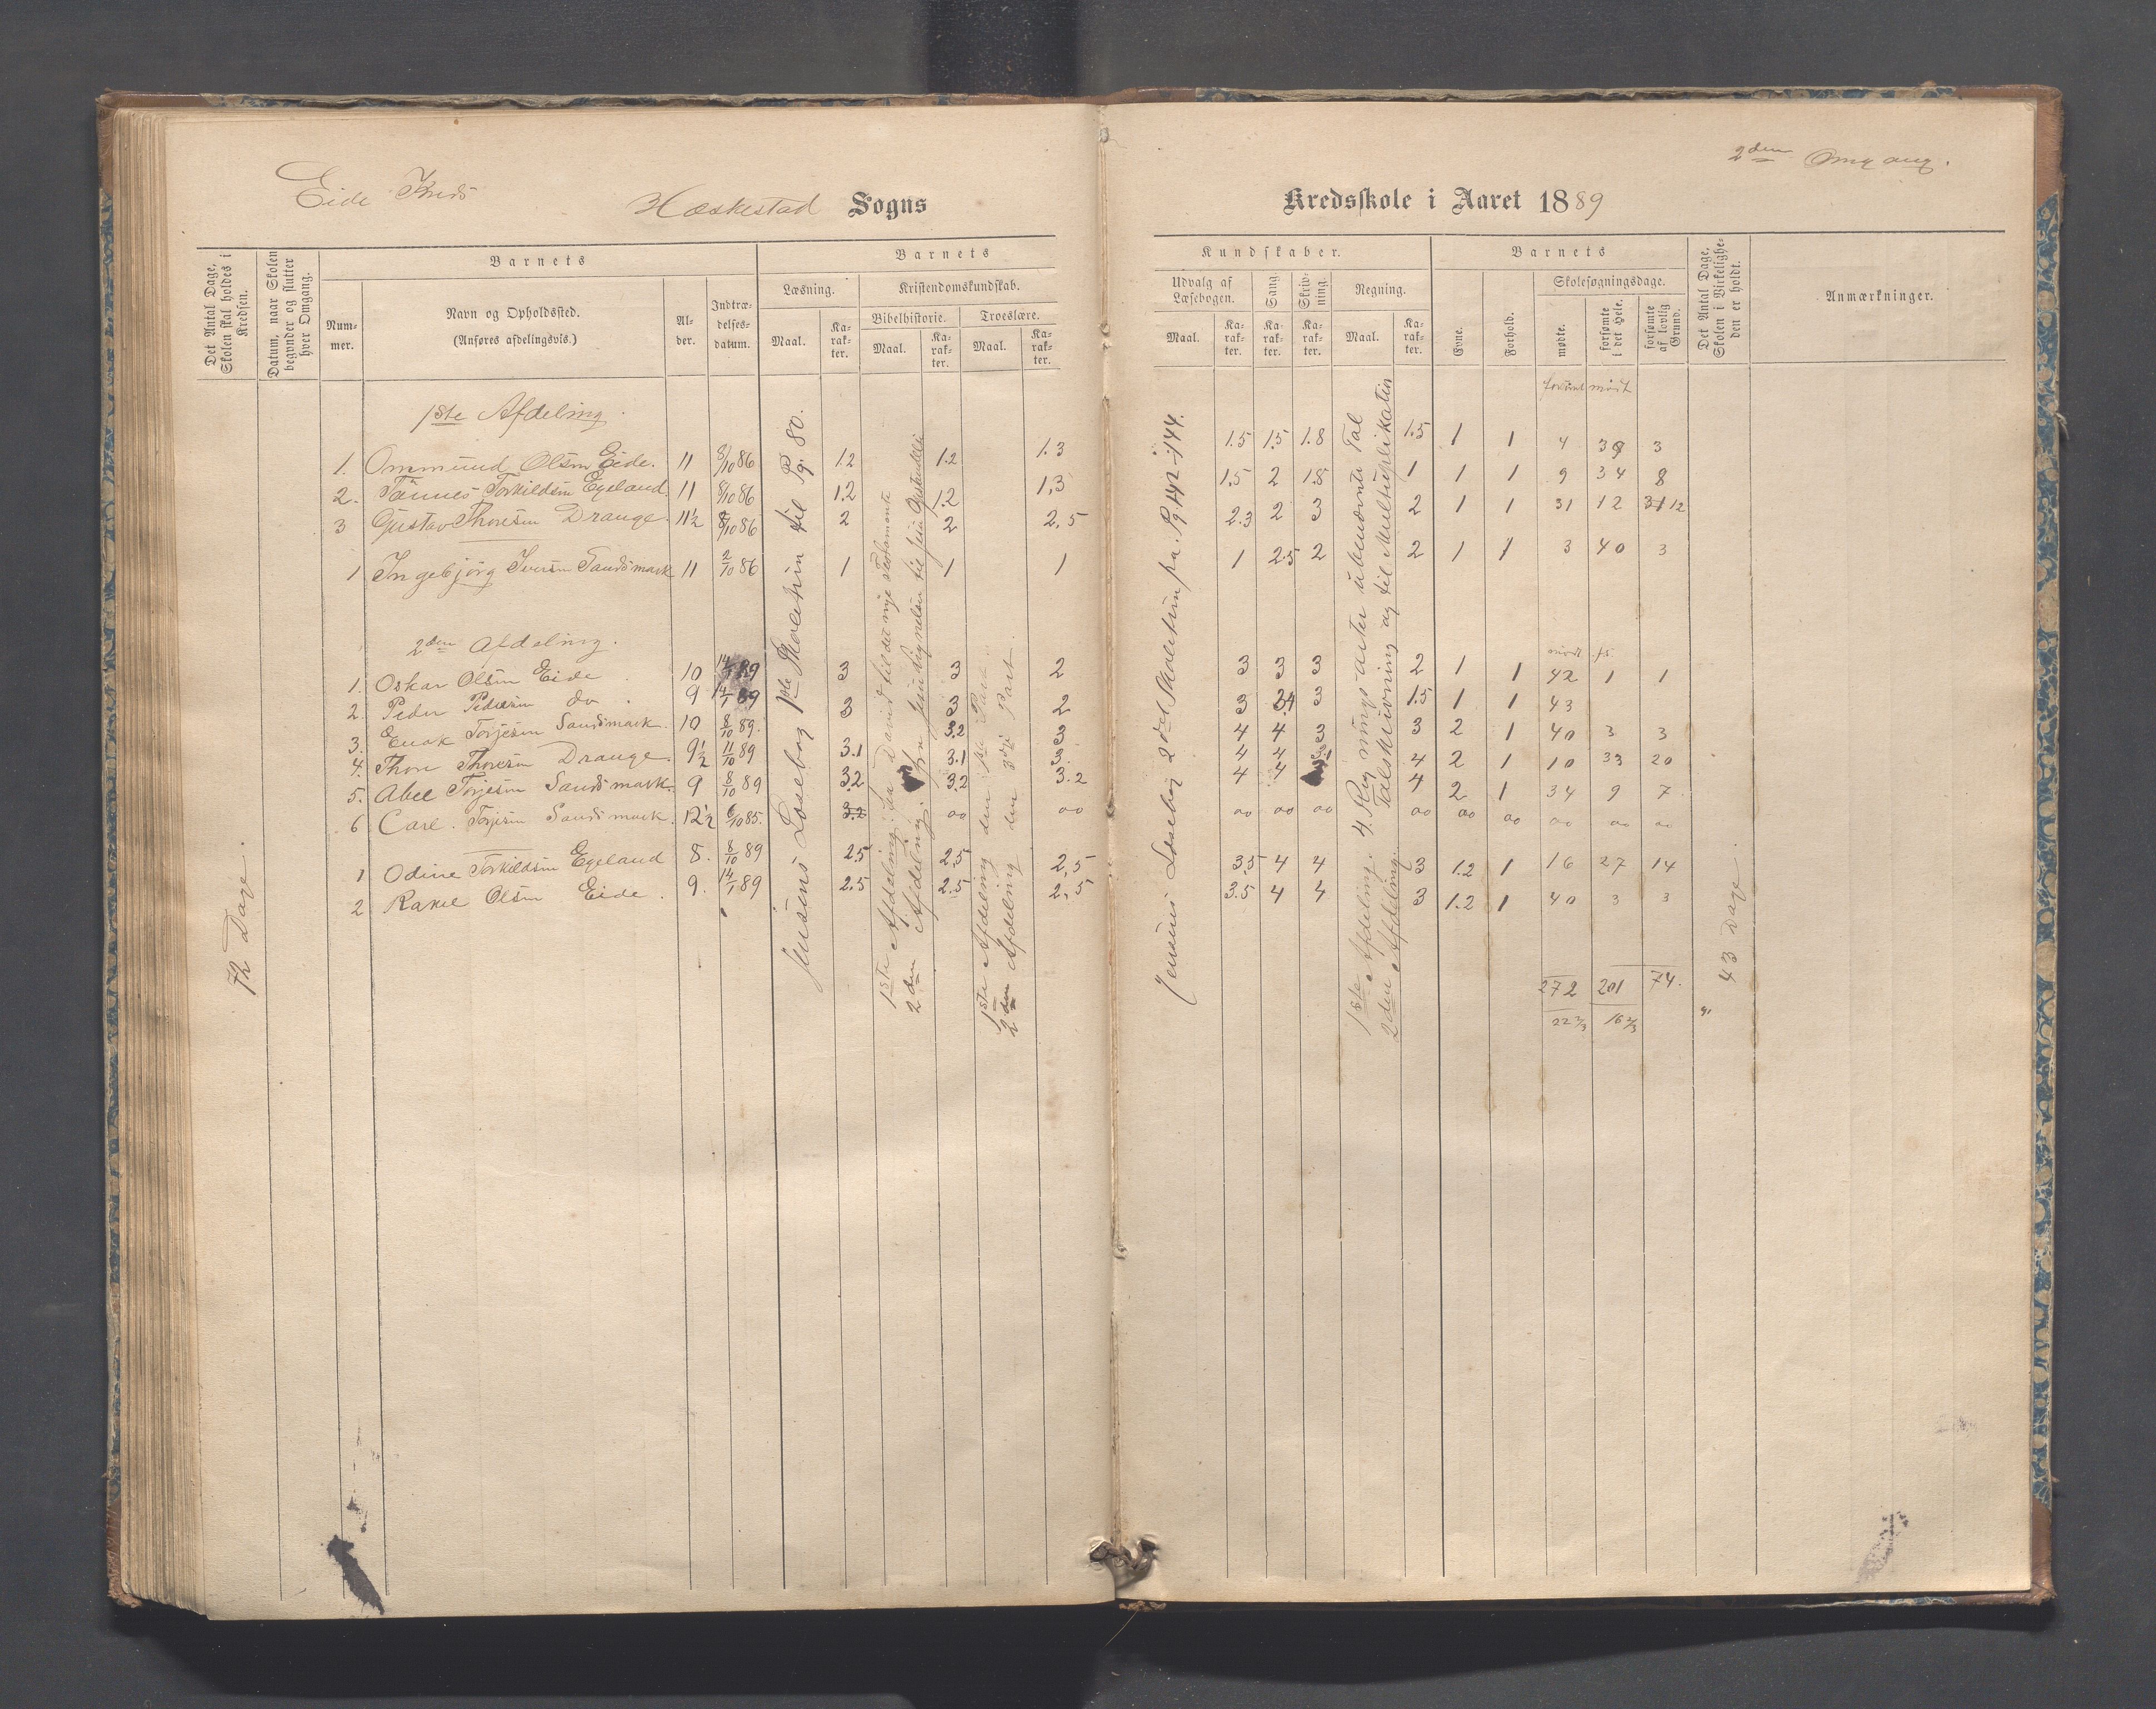 Eide Kreds
Hæskestad Sogns
2den Omgang.
Kredsskole i Aaret 1889
Det Antal Dage, Skolen skal holdes i Kredsen.
Datum, naar Skolen begynder og slutter hver Omgang.
Barnets
Num-
mer.
Navn og Opholdssted.
(Anføres afdelingsvis.)
Al-
der.
Indtræ-
delses-
datum.
Barnets
Læsning.
Maal.
Ka-
rak-
ter.
Kristendomskundskab.
Bibelhistorie.
Maal.
Ka-
rak-
ter.
Troeslære.
Maal.
Ka-
rak-
ter.
Kundskaber.
Udvalg af
Læsebogen.
Maal.
Ka-
rak-
ter.
Sang.
Ka-
rak-
ter.
Skriv-
ning.
Ka-
rak-
ter.
Regning.
Maal.
Ka-
rak-
ter.
Barnets
Evne.
Forhold.
Skolesøgningsdage.
mødte.
forsømte i det Hele.
forsømte af lovlig Grund.
Det Antal Dage, Skolen i Virkelighe-
den er holdt.
Anmærkninger.
72 Dage.
1ste Afdeling.
1. Ommund Olsen Eide. 11 8/10 86 1.2 1.2 1.3 1.5 1.5 1.8 1.5 1 1 4 39 3
2. Tønnes Torkildsen Egeland. 11 8/10 86 1.2 1.2 1,3 1,5 2 1.8 1 1 1 9 34 8
3 Gustav Thoresen Drange. 11½ 8/10 86 2 2 2,5 2.3 2 3 2 1 1 31 12 12
1 Ingebjørg Iversen Sandsmark 11 2/10 86 1 1 1 1 2.5 2 2 1 1 3 40 3
2den Afdeling.
1. Oskar Olsen Eide 10 14/1 89 3 3 2 3 3 3 2 1 1 42 1 1
2. Peder Pedersen do 9 14/1 89 3 3 2 3 3 1.5 1 1 43
3. Enok Torjesen Sandsmark. 10 8/10 89. 3.2 3 4 4 3 3 2 1 40 3 3
4. Thore Thoresen Drange 9½ 11/10 89 3.1 3.1 3 4 4 4 2 1 10 33 20
5. Abel Torjesen Sandsmark. 9 8/10 89 3.2 3.2 3.2 4 4 4 2 1 34 9 7
6 Carl. Torjesen Sandsmark. 12½ 6/10 85. 3.2 oo oo oo oo oo oo oo oo oo oo oo
1 Odine Torkildsen Egeland 8. 8/10 89 2.5 2.5 2,5 3.5 4 4 3 1.2 1 16 27 14
2 Rakel Olsen Eide. 9. 14/1 89 2.5 2.5 2,5, 3.5 4 4 3 1.2 1 40 3 3
272 201 74.
22 2/3 16 2/3
Jensens Læsebog 1ste Skoletrin til Pg. 80.
1ste Afdeling: fra David til det nye Testamente
2den Afdeling
1ste Afdeling den 1ste Part.
2den Afdeling den 3die Part
Jensens Læsebog 2det Skoletrin fra. Pg. 142-144.
1ste Afdeling. 4 Regningsarter ubenævnte Tal
2den Afdeling. Talskrivning og til Multiplikation
43 Dage.